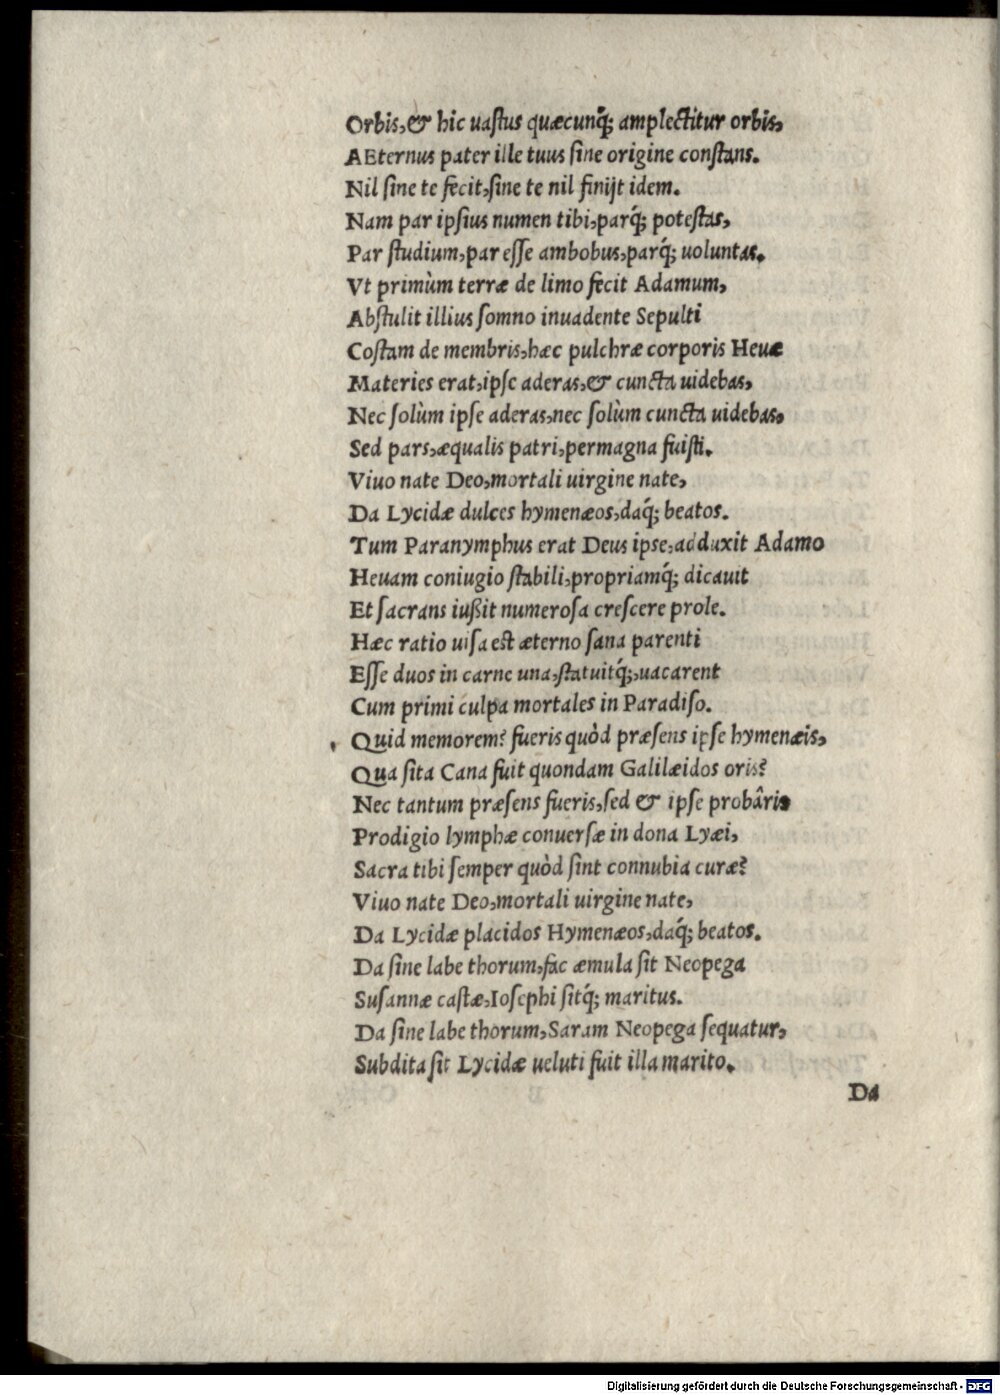 Orbis, & hic uastus quæcunq́; amplectitur orbis,
AEternus pater ille tuus sine origine constans.
Nil sine te fecit, sine te nil finijt idem.
Nam par ipsius numen tibi, parq́; potestas,
Par studium, par esse ambobus, parq́; uoluntas.
Vt primùm terræ de limo fecit Adamum,
Abstulit illius somno inuadente Sepulti
Costam de membris, hæc pulchræ corporis Heuæ
Materies erat, ipse aderas, & cuncta uidebas,
Nec solùm ipse aderas, nec solùm cuncta uidebas,
Sed pars, æqualis patri, permagna fuisti.
Viuo nate Deo, mortali uirgine nate,
Da Lycidæ dulces hymenæos, daq́; beatos.
Tum Paranymphus erat Deus ipse, adduxit Adamo
Heuam coniugio stabili, propriamq́; dicauit
Et sacrans iußit numerosa crescere prole.
Hæc ratio uisa est æterno sana parenti
Esse duos in carne una, statuitq́;, uacarent
Cum primi culpa mortales in Paradiso.
Quid memorem? fueris quòd præsens ipse hymenæis,
Qua sita Cana fuit quondam Galilæidos oris?
Nec tantum præsens fueris, sed & ipse probâris
Prodigio lymphæ conuersæ in dona Lyæi,
Sacra tibi semper quòd sint connubia curæ?
Viuo nate Deo, mortali uirgine nate,
Da Lycidæ placidos Hymenæos, daq́; beatos.
Da sine labe thorum, fac æmula sit Neopega
Susannæ castæ, Iosephi sitq́; maritus.
Da sine labe thorum, Saram Neopega sequatur,
Subdita sit Lycidæ ueluti fuit illa marito.
Da
Digitalisierung gefördert durch die Deutsche Forschungsgemeinschaft - DFG